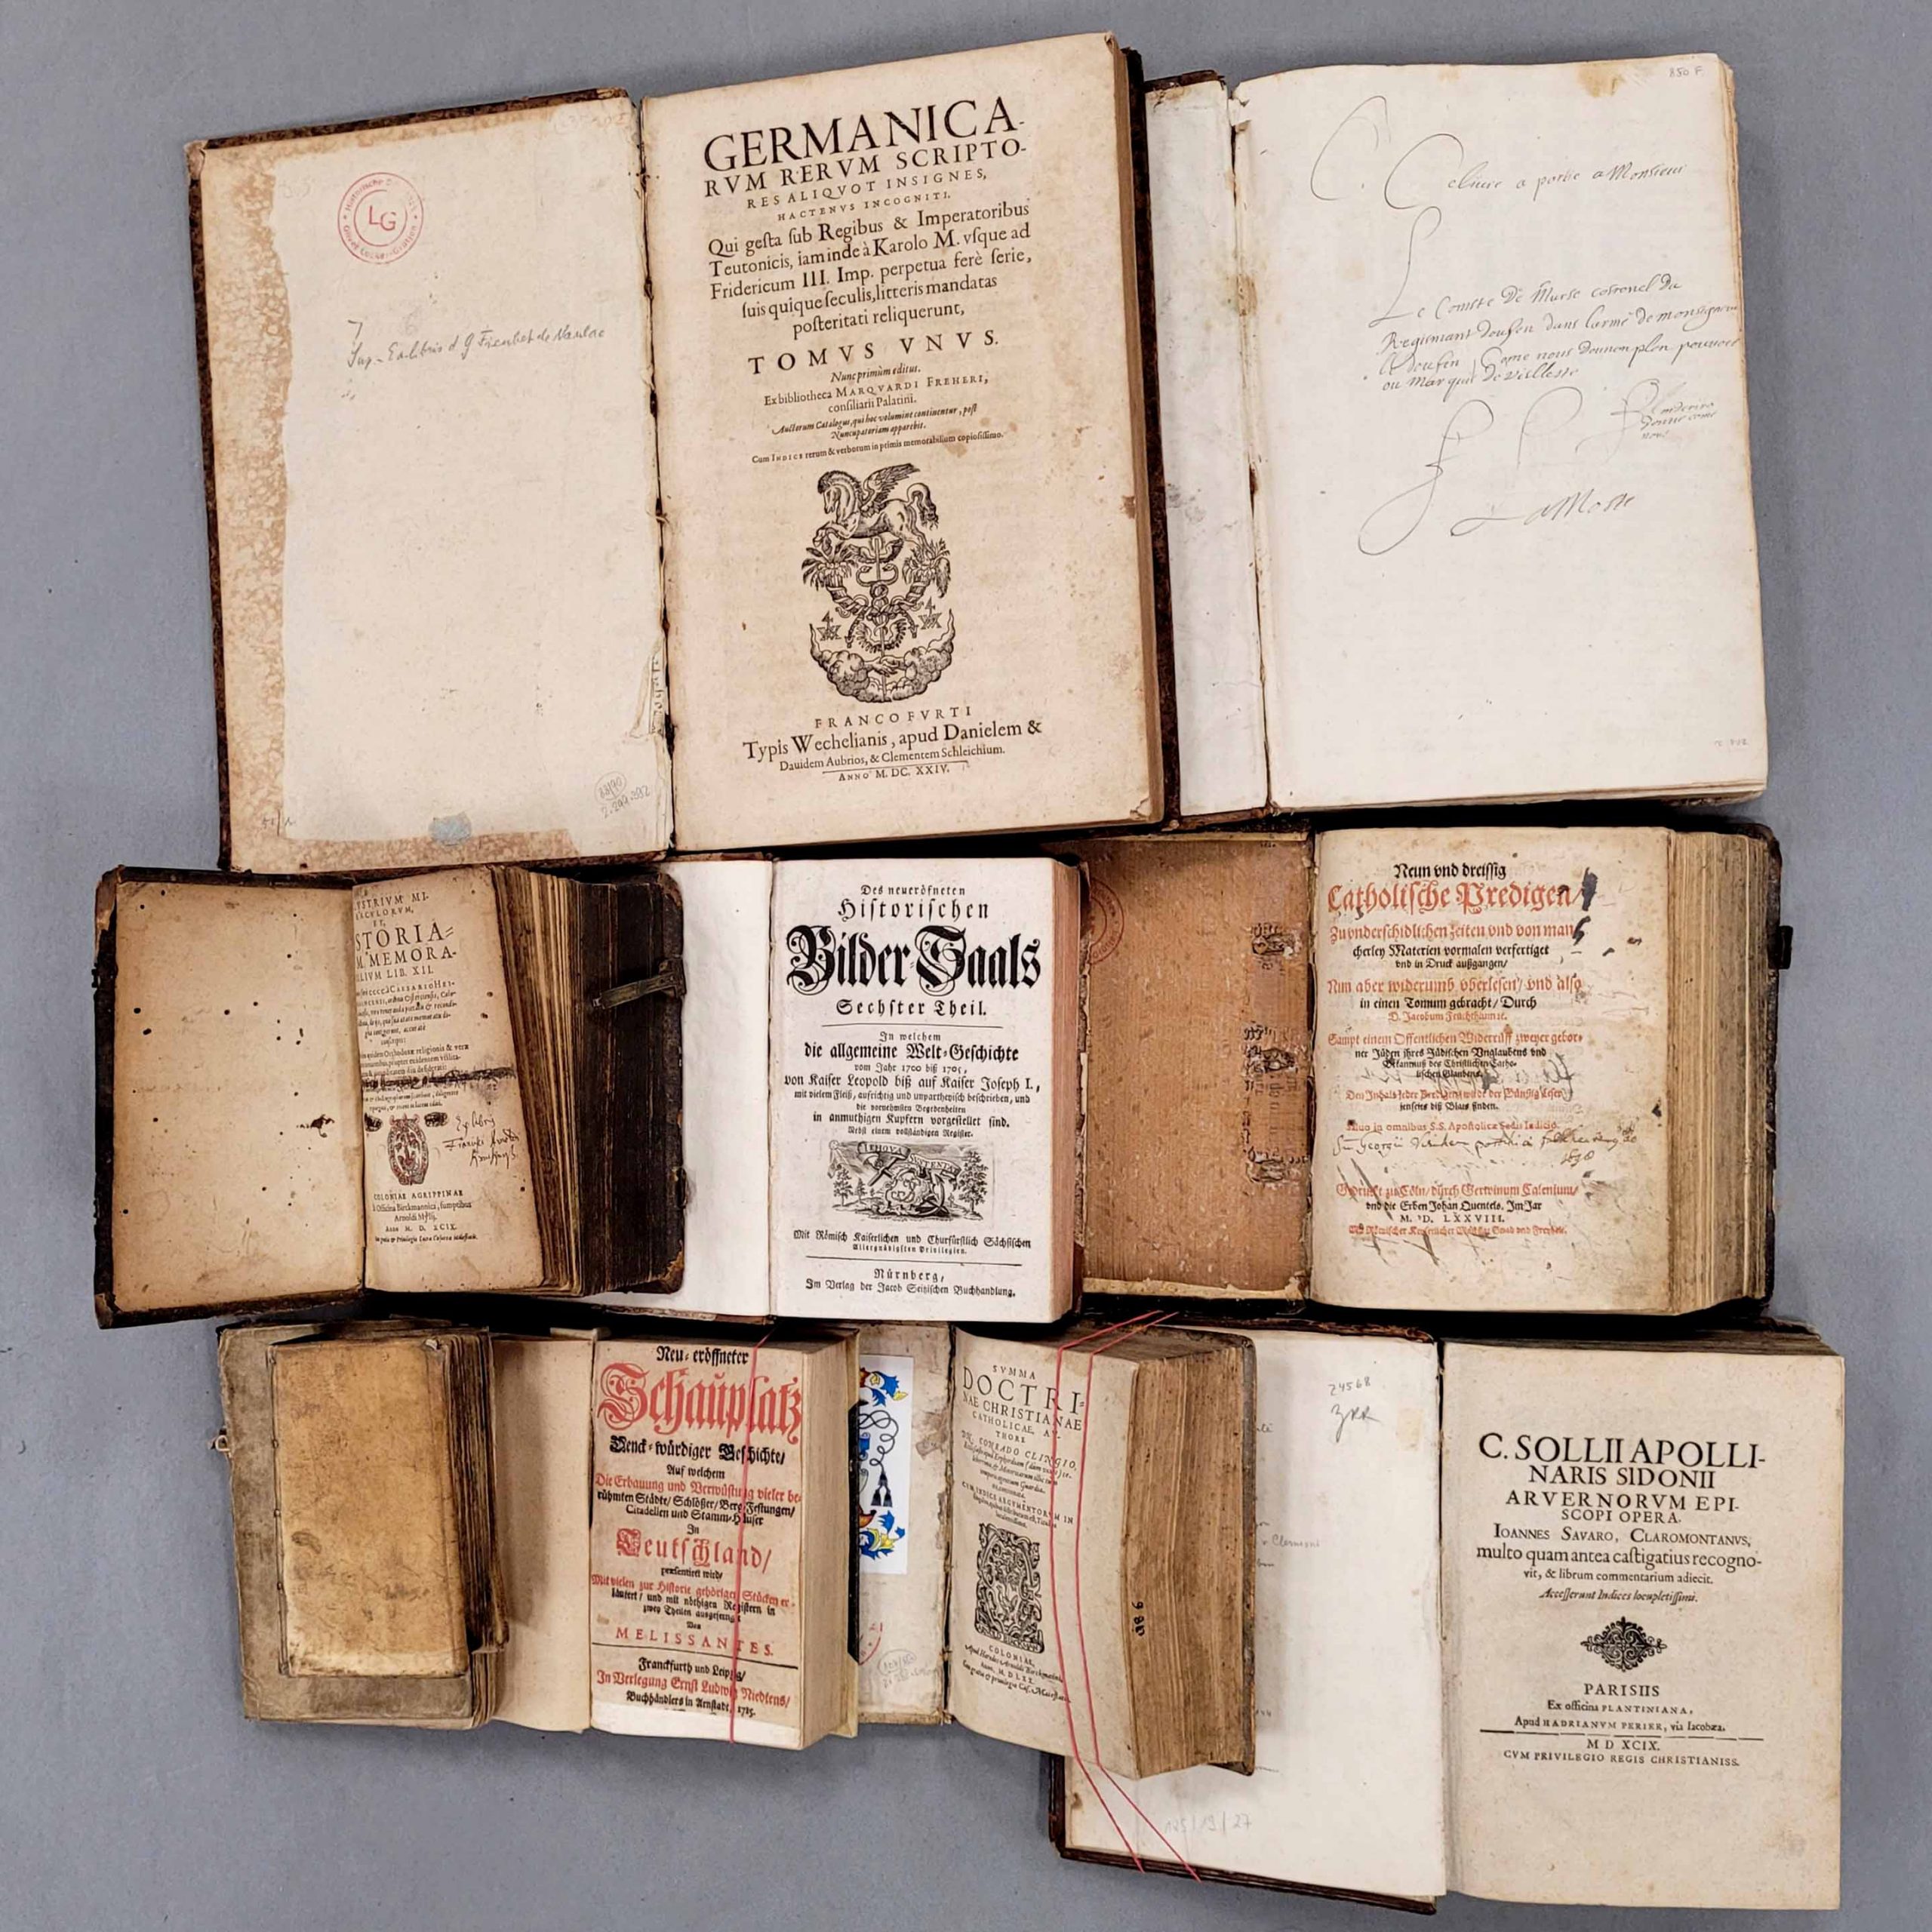 LG
GERMANICA-
RVM RERVM SCRIPTO-
RES ALIQVOT INSIGNES,
HACTENVS INCOGNITI,
Qui gesta sub Regibus & Imperatoribus
Teutonicis, iam inde à Karolo M. vsque ad
Fridericum III. Imp. perpetua ferè serie,
suis quique seculis, litteris mandatas
posteritati reliquerunt,
TOMVS VNVS.
Nunc primùm editus.
Ex bibliotheca MARQVARDI FREHERI,
consiliarii Palatini.
Auctorum Catalogus, qui hoc volumine continentur, post
Nuncupatoriam apparebit.
Cum INDICE rerum & verborum in primis memorabilium copiosissimo.
FRANCOFVRTI
Typis Wechelianis, apud Danielem &
Dauidem Aubrios, & Clementem Schleichium.
ANNO M. DC. XXIV.
850 F
a Monsieur
Le Comte De
Regimant dans larmé de monsigneur
ou Marquis de
LaMotte
VSTRIVM MI-
RACVLORVM,
ET
STORIA=
M MEMORA-
LIVM LIB. XII.
CAESARIO HEI-
Ex libris
COLONIAE AGRIPPINAE
Officina Birckmannica, sumptibus
Arnoldi Mylij.
Anno M. D. XCIX.
Des neueröfneten
Historischen
Bilder-Saals
Sechster Theil.
In welchem
die allgemeine Welt-Geschichte
vom Jahr 1700 biß 1705,
von Kaiser Leopold biß auf Kaiser Joseph I.,
mit vielem Fleiß, aufrichtig und unpartheyisch beschrieben, und
die vornehmsten Begebenheiten
in anmuthigen Kupfern vorgestellet sind.
Nebst einem vollständigen Register.
Mit Römisch Kaiserlichen und Churfürstlich Sächsischen
Allergnädigsten Privilegien.
Nürnberg,
Im Verlag der Jacob Seitzischen Buchhandlung.
Neun vnd dreissig
Catholische Predigen/
Zu vnderschidlichen Zeiten vnd von man
cherley Materien vormalen verfertiget
vnd in Druck außgangen/
Nun aber widerumb vberlesen/ vnd also
in einen Tomum gebracht/ Durch
D. Jacobum Feuchthannt.
Sampt einem Offentlichen Widerruff zweyer gebor-
ner Jüden ihres Jüdischen Vnglaubens vnd
Bekantnuß des Christlichen Catho-
lischen Glaubens.
Den Inhalt jeder Predigen würde der Günstig Leser
jenseits diß Blats finden.
Saluo in omnibus S.S. Apostolicæ Sedis Iudicio.
Gedruckt zu Cöln/ durch Gerwinum Calenium/
vnd die Erben Johan Quentels. Im Jar
M. D. LXXVIII.
Neu-eröffneter
Schauplatz
Denck-würdiger Geschichte/
Auf welchem
Die Erbauung und Verwüstung vieler be-
rühmten Städte/ Schlößer/ Berg-Festungen/
Citadellen und Stamm-Häuser
In
Deutschland/
præsentiret wird/
Mit vielen zur Historie gehörigen Stücken er-
läutert/ und mit nöthigen Registern in
zwey Theilen ausgefertigt
Von
MELISSANTES.
Franckfurth und Leipzig/
In Verlegung Ernst Ludwig Niedtens/
Buchhändlers in Arnstadt, 1715.
SVMMA
DOCTRI-
NAE CHRISTIANAE
CATHOLICAE, AV-
THORE
DN. CONRADO CLINGIO,
CVM INDICE ARGVMENTORVM IN
COLONIAE,
Apud Hæredes Arnoldi Birckmanni
Anno M. D. LXX.
Cum gratia & priuilegio Cæs. Maiestatis
980
24568
125/19/27
C. SOLLII APOLLI-
NARIS SIDONII
ARVERNORVM EPI-
SCOPI OPERA.
IOANNES SAVARO, CLAROMONTANVS,
multo quam antea castigatius recogno-
vit, & librum commentarium adiecit.
Accesserunt Indices locupletissimi.
PARISIIS
Ex officina PLANTINIANA,
Apud HADRIANVM PERIER, via Iacobæa.
M D XCIX.
CVM PRIVILEGIO REGIS CHRISTIANISS.